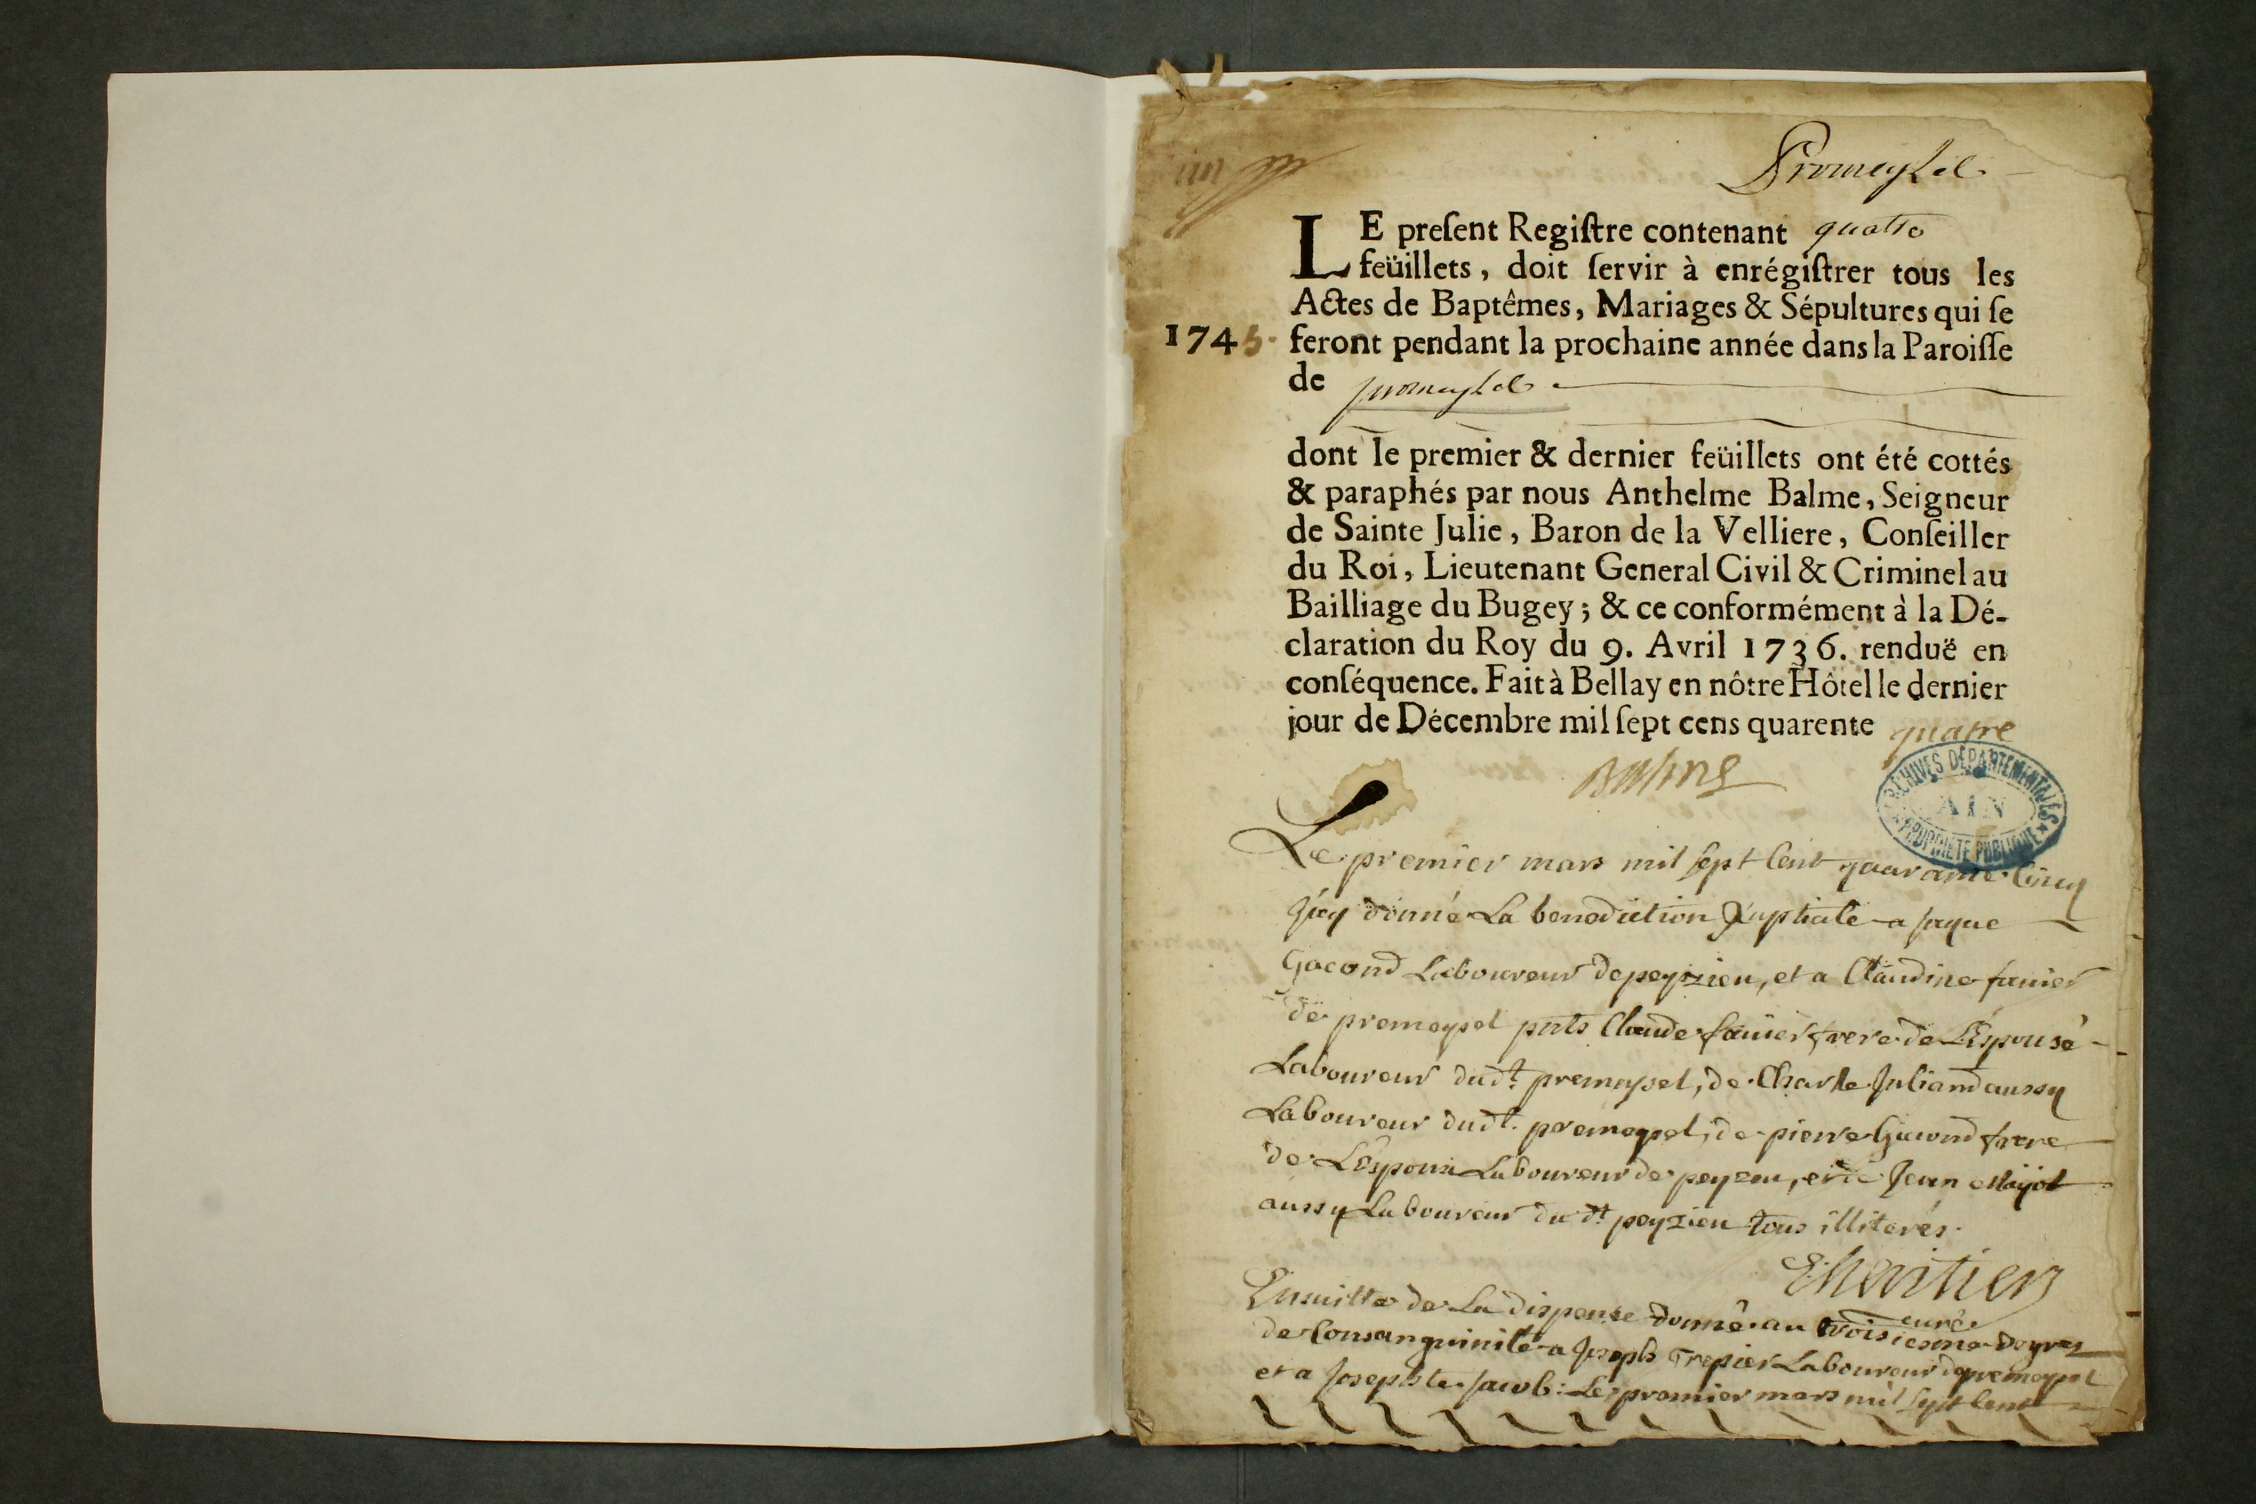 un
Promeysel
LE preſent Regiſtre contenant quatre
feüillets, doit ſervir à enrégiſtrer tous les
Actes de Baptêmes, Mariages & Sépultures qui ſe
1745. feront pendant la prochaine année dans la Paroiſſe
de promeysel
dont le premier & dernier feüillets ont été cottés
& paraphés par nous Anthelme Balme, Seigneur
de Sainte Julie, Baron de la Velliere, Conſeiller
du Roi, Lieutenant General Civil & Criminel au
Bailliage du Bugey; & ce conformément à la Dé-
claration du Roy du 9. Avril 1736. renduë en
conſéquence. Fait à Bellay en nôtre Hôtel le dernier
jour de Décembre mil ſept cens quarente quatre
Balme
ARCHIVES DÉPARTEMENTALES
AIN
PROPRIÉTÉ PUBLIQUE
Le premier mars mil sept Cent quarante Cinq
J'ay donné La benediction Nuptiale a jaque
Gacond Laboureur de peyzieu, et a Claudine
de premeysel pnts Claude frere de L'Epousé
Laboureur dudt. premeysel, de Charle Juliand aussy
Laboureur dudt. premeysel, de pierre Gacond frere
de L'Epoux Laboureur de peyzieu, et de Jean
aussy Laboureur du dt. peyzieu tous illiterés.
curé
Ensuitte de La dispense donné au troisiesme degrez
de Consanguinité a Joseph Trepier Laboureur de premeysel
et a Josephte Jacob: Le premier mars mil sept Cent